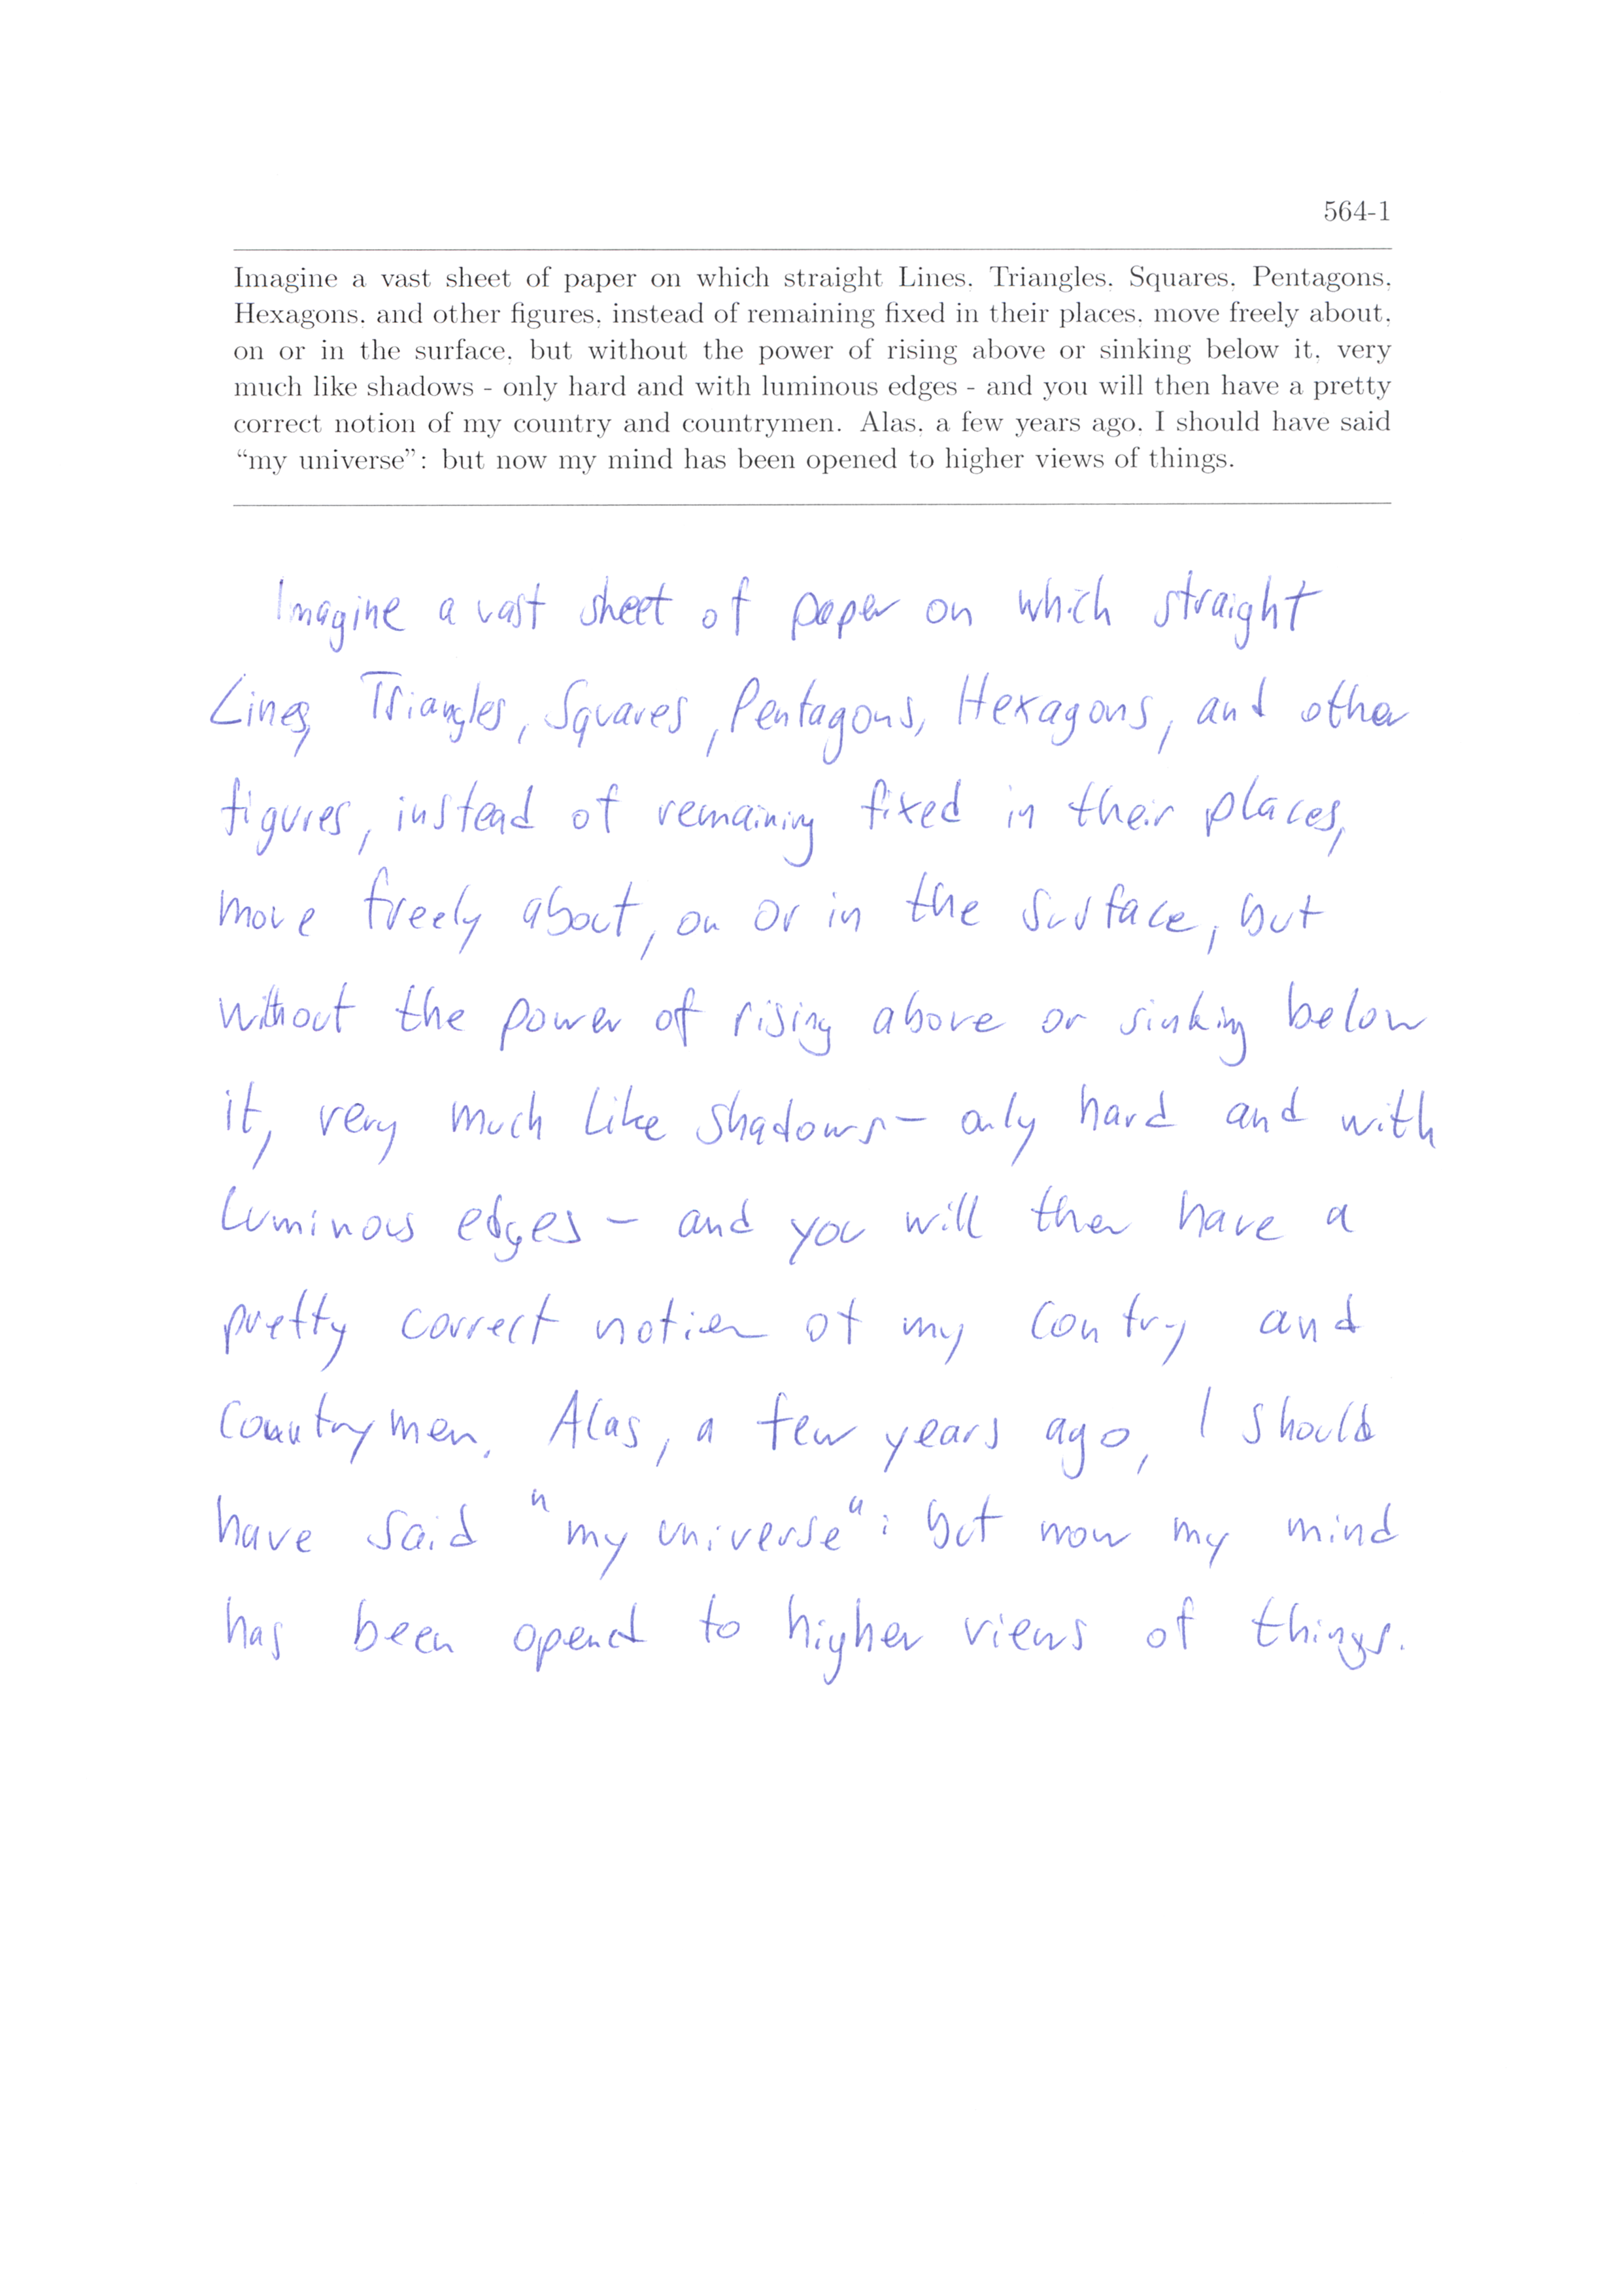 564-1
Imagine a vast sheet of paper on which straight Lines, Triangles, Squares, Pentagons,
Hexagons, and other figures, instead of remaining fixed in their places, move freely about,
on or in the surface, but without the power of rising above or sinking below it, very
much like shadows - only hard and with luminous edges - and you will then have a pretty
correct notion of my country and countrymen. Alas, a few years ago, I should have said
“my universe”: but now my mind has been opened to higher views of things.
Imagine a vast sheet of paper on which straight
Lines, Triangles, Squares, Pentagons, Hexagons, and other
figures, instead of remaining fixed in their places,
move freely about, on or in the surface, but
without the power of rising above or sinking below
it, very much like shadows - only hard and with
luminous edges - and you will then have a
pretty correct notion of my contry and
countrymen. Alas, a few years ago, I should
have said "my universe": but now my mind
has been opened to higher views of things.